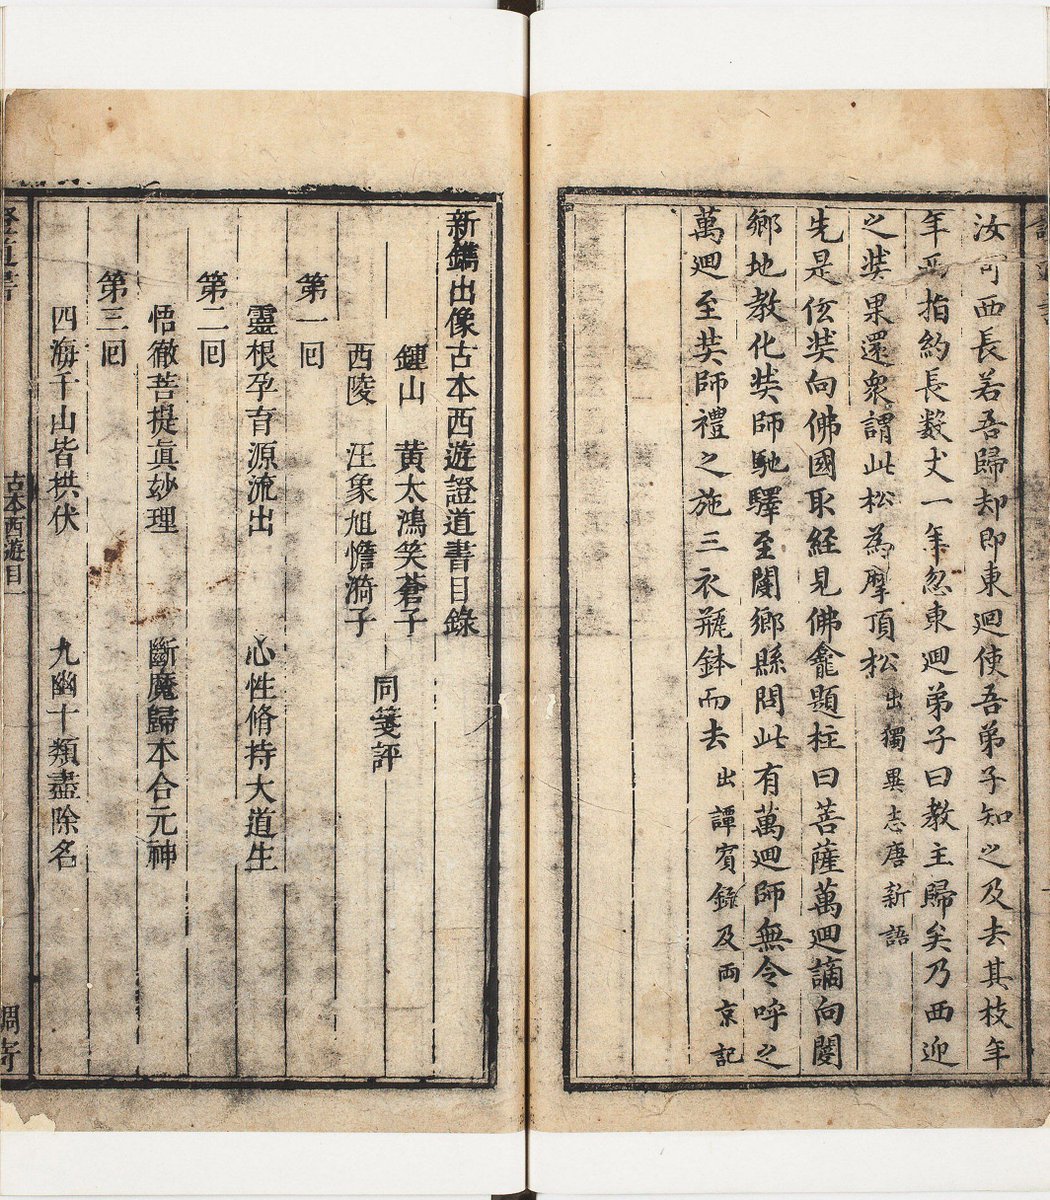 汝可西長若吾歸却即東迴使吾弟子知之及去其枝年
年西指約長數丈一年忽東迴弟子曰教主歸矣乃西迎
之奘果還衆謂此松為摩頂松出獨異志唐新語
先是伭奘向佛國取經見佛龕題柱曰菩薩萬迴謫向閿
鄉地教化奘師馳驛至閿鄉縣問此有萬迴師無令呼之
萬迴至奘師禮之施三衣瓶鉢而去出譚賓錄及両京記
新鐫出像古本西遊證道書目錄
鍾山 黄太鴻笑蒼子
西陵 汪象旭憺漪子
同箋評
第一囘
靈根孕育源流出 心性脩持大道生
第二囘
悟徹菩提眞妙理 斷魔歸本合元神
第三囘
四海千山皆拱伏 九幽十類盡除名
證道書
古本西遊目一